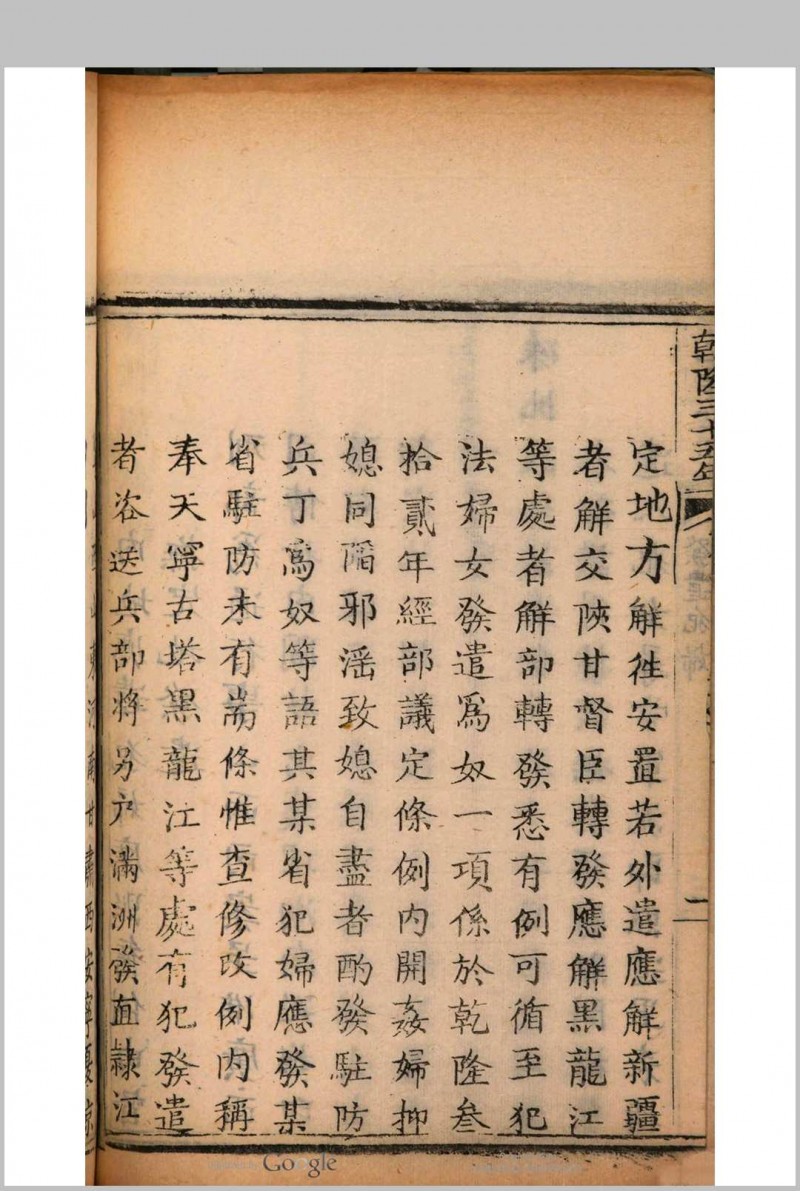 乾隆三十五年
二
定地方解徃安置若外遣應解新疆
者解交陜甘督臣轉發應解黑龍江
等處者解部轉發悉有例可循至犯
法婦女發遣爲奴一項係於乾隆叁
拾貳年經部議定條例内開姦婦抑
媳同䧟邪滛致媳自盡者酌發駐防
兵丁爲奴等語其某省犯婦應發某
省駐防未有耑條惟查修改例内稱
奉天寧古塔黑龍江等處有犯發遣
者咨送兵部將另户滿洲發直隷江
Google